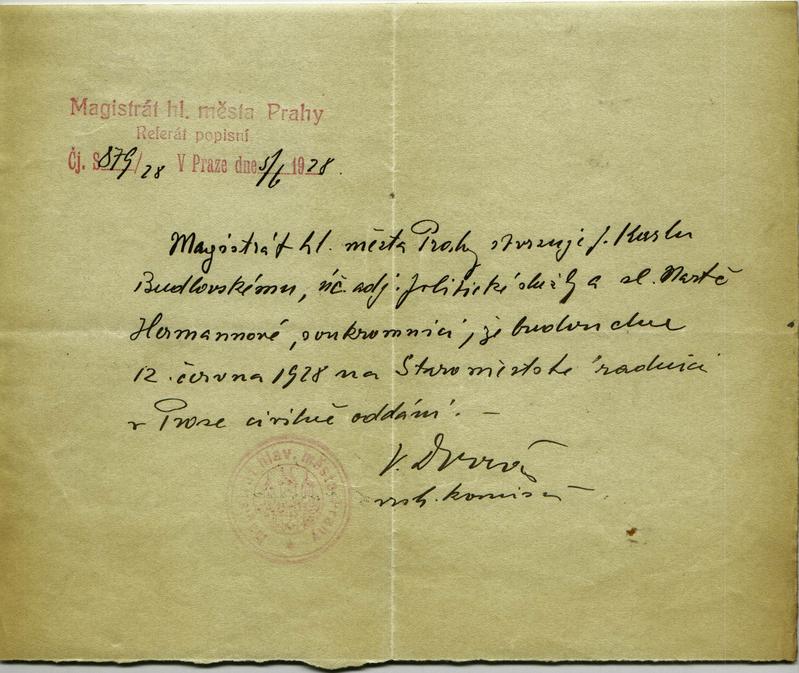 Magistrát hl. města Prahy
Referát popisní
Čj. S 879/28 V Praze dne 5/6 1928.
Magistrát hl. města Prahy stvrzuje p. Karlu
Budlovskému, úč. adj. politické služby a sl. Martě
Hermannové, soukromnici, že budou dne
12. června 1928 na Staroměstské radnici
v Praze civilně oddáni. —
V. Dvořák
vrch. komisař
hlav. města Prahy